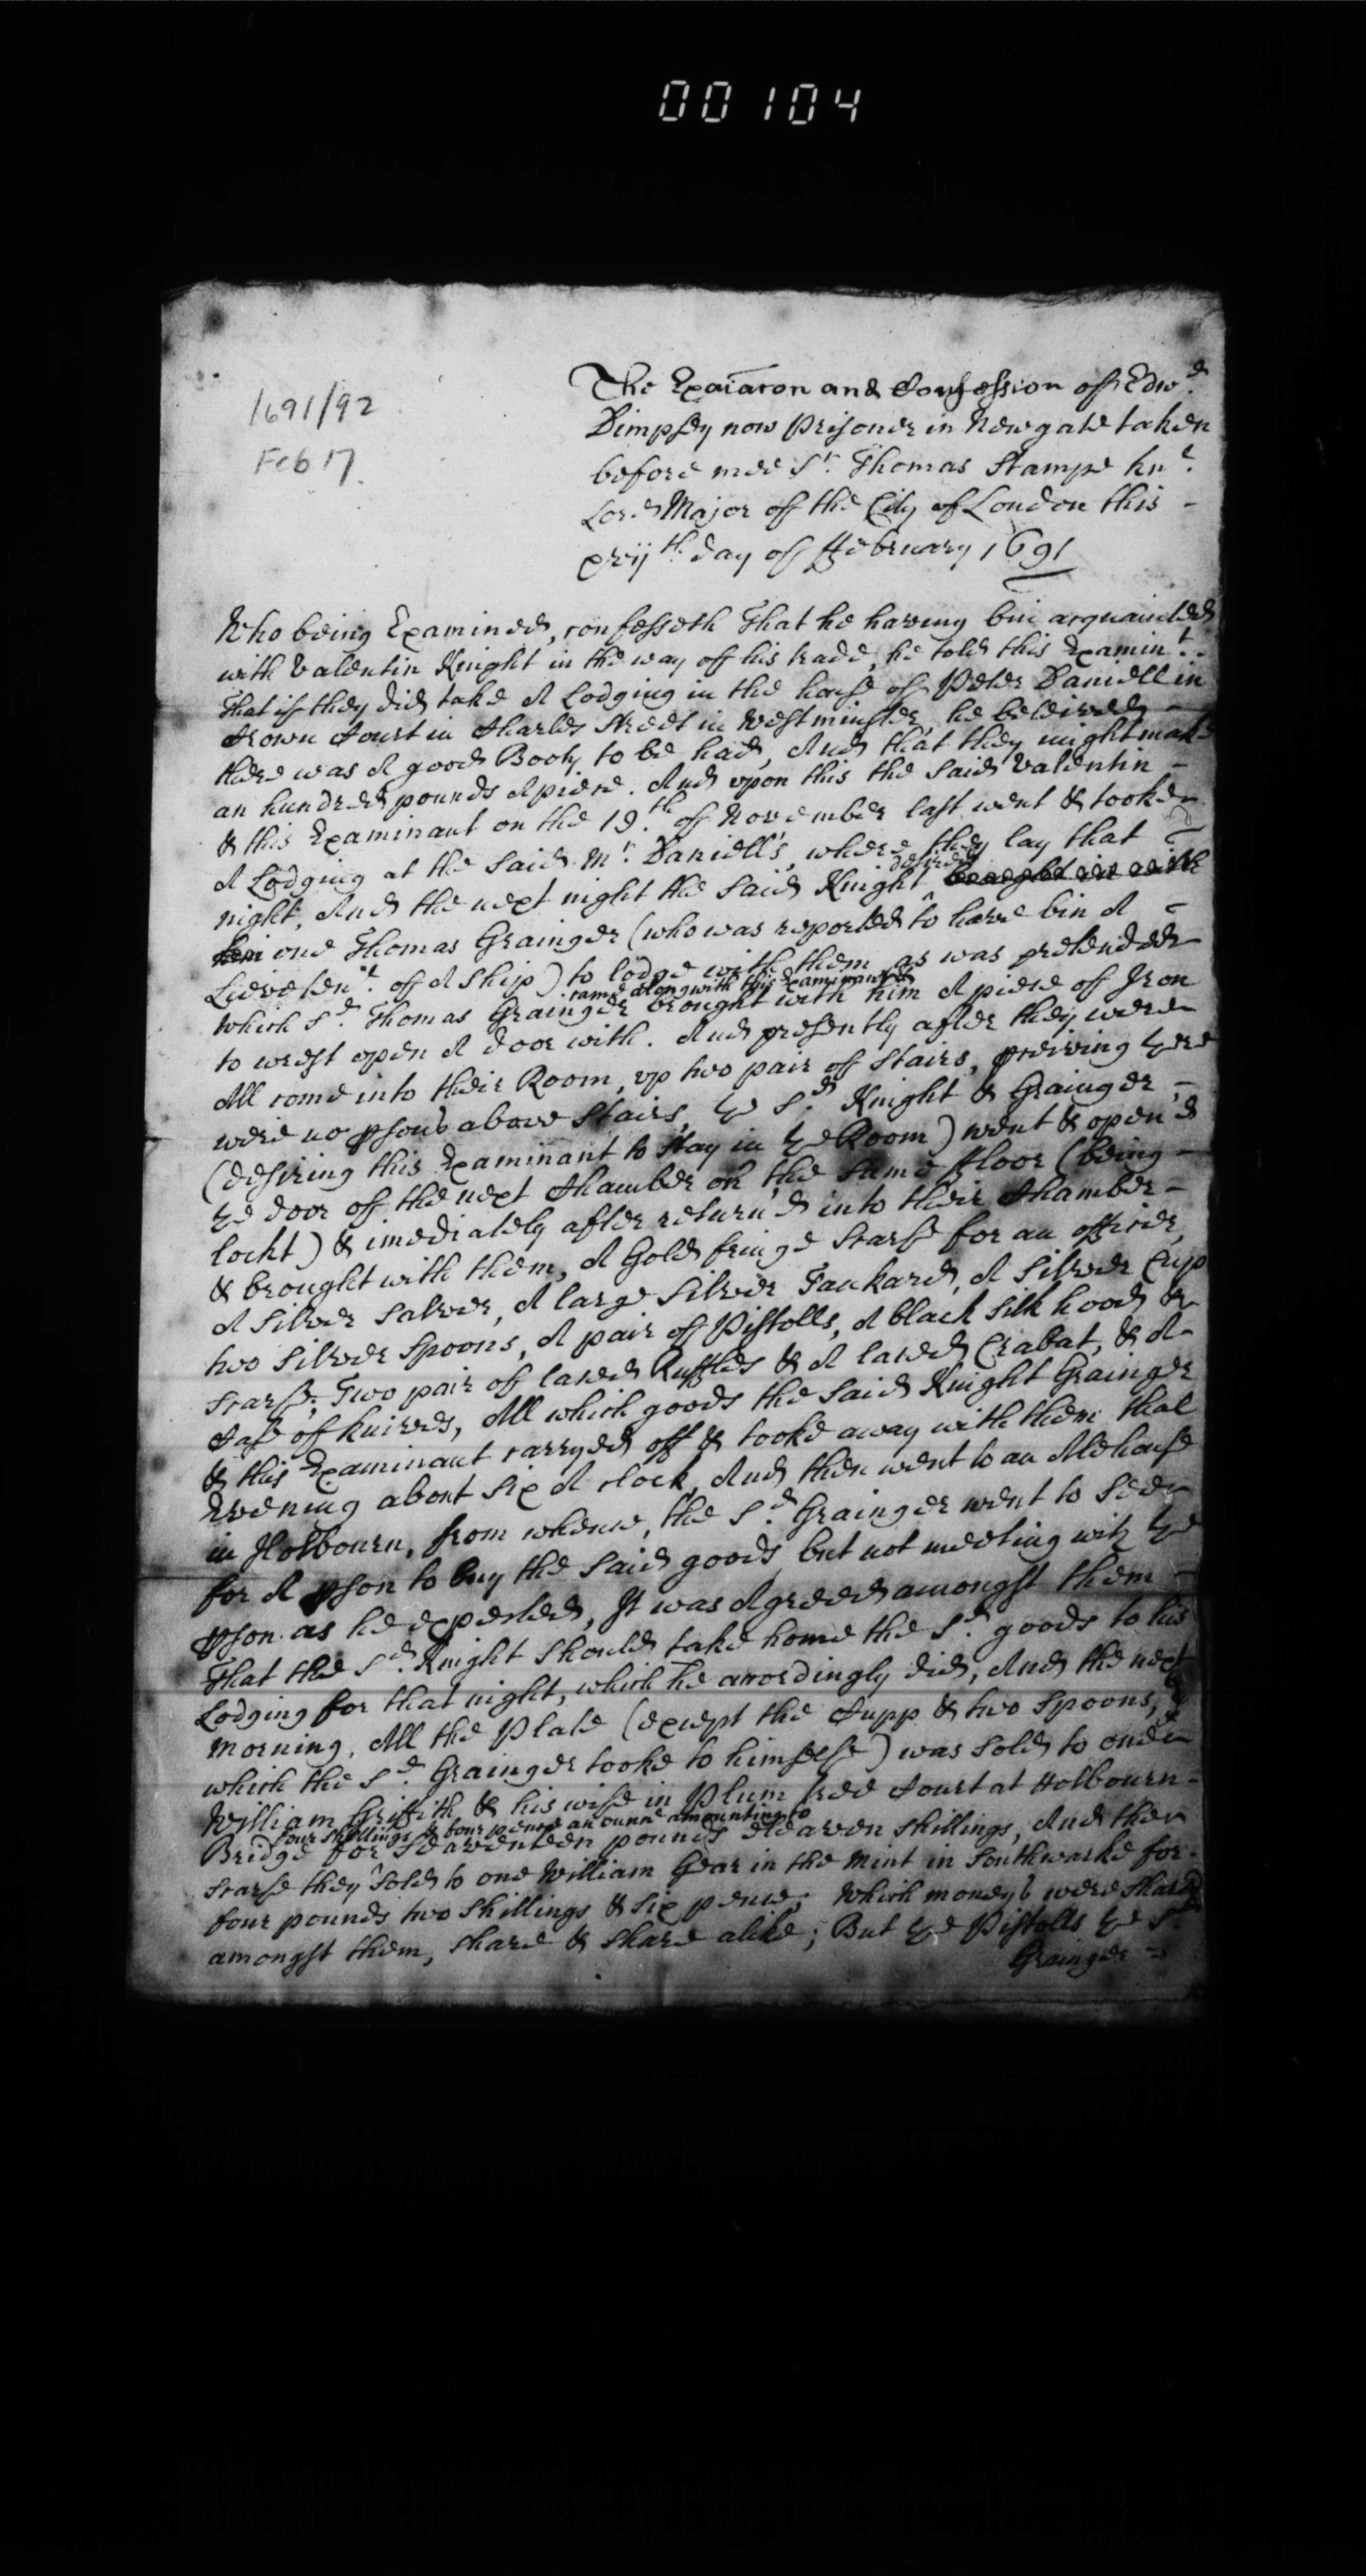 00104
1691/92
Feb 17.
The Exaiacon and Confession off Edw.d
Dimpsey now Prisoner in Newgate taken
before mee Sr. Thomas Stampe Knt.
Lord Major off the City of London this -
xvijth. day off ffebruary 1691
Who being Examined, confesseth That he haveing bin acquainted
with Valentin Knight in the way off his trade, he told this Examint.
That if they did take A Lodging in the house off Peter Daniell in
Crown Court in Charles Street in Westminster, he beleived -
there was A good Booty to be had, And that they might make
an hundred pounds Apiece. And upon this the said Valentin -
& this Examinant on the 19.th off November last went & tooke
A Lodging at the said Mr. Daniell's, where they lay that -
night, And the next night the said Knight desired brought in with
him one Thomas Grainger (who was reported to have bin A -
Lieveten.t off A Ship) to lodge with them as was pretended
came along with this Examinant &
which Sd. Thomas Grainger brought with him A piece off Iron
to wrest open A door with. And presently after they were
All come into their Room, up two pair off Stairs, pceiving there
were no psons above Stairs, ye Sd. Knight & Grainger -
(desiring this Examinant to stay in ye Room) went & open'd
ye door off the next Chamber on the same ffloor (being -
lockt) & imediately after return'd into their Chamber -
& brought with them, A Gold fringe Scarfe for an officer,
A Silver Salver, A large Silver Tankard, A Silver Cup
two Silver Spoons, A pair off Pistolls, A black Silk hood &
Scarfe, Two pair off laced Ruffles & A laced Crabat, & A
Case of knives, All which goods the said Knight Grainger
& this Examinant carryed off & tooke away with them that
Evening about Six A clock, And then went to an Alehouse
in Holbourn, from whence, the Sd. Grainger went to see
for A pson to buy the said goods but not meeting with ye
pson as he expected, It was Agreed amongst them -
That the Sd. Knight should take home the Sd. goods to his
Lodging for that night, which he accordingly did, And the next
Morning, All the Plate (except the Cupp & two Spoons,
which the Sd. Grainger tooke to himselfe) was sold to one
William Griffith & his wife in Plum tree Court at Holbourn -
four shillings & four pence an ounce amounting to
Bridge for Seaventeen pounds eleaven shillings, And the
Scarfe they sold to one William Gear in the Mint in Southwarke for -
four pounds two shillings & six pence; Which moneys were shared
amongst them, share & share alike; But ye Pistolls ye Sd.
Grainger -